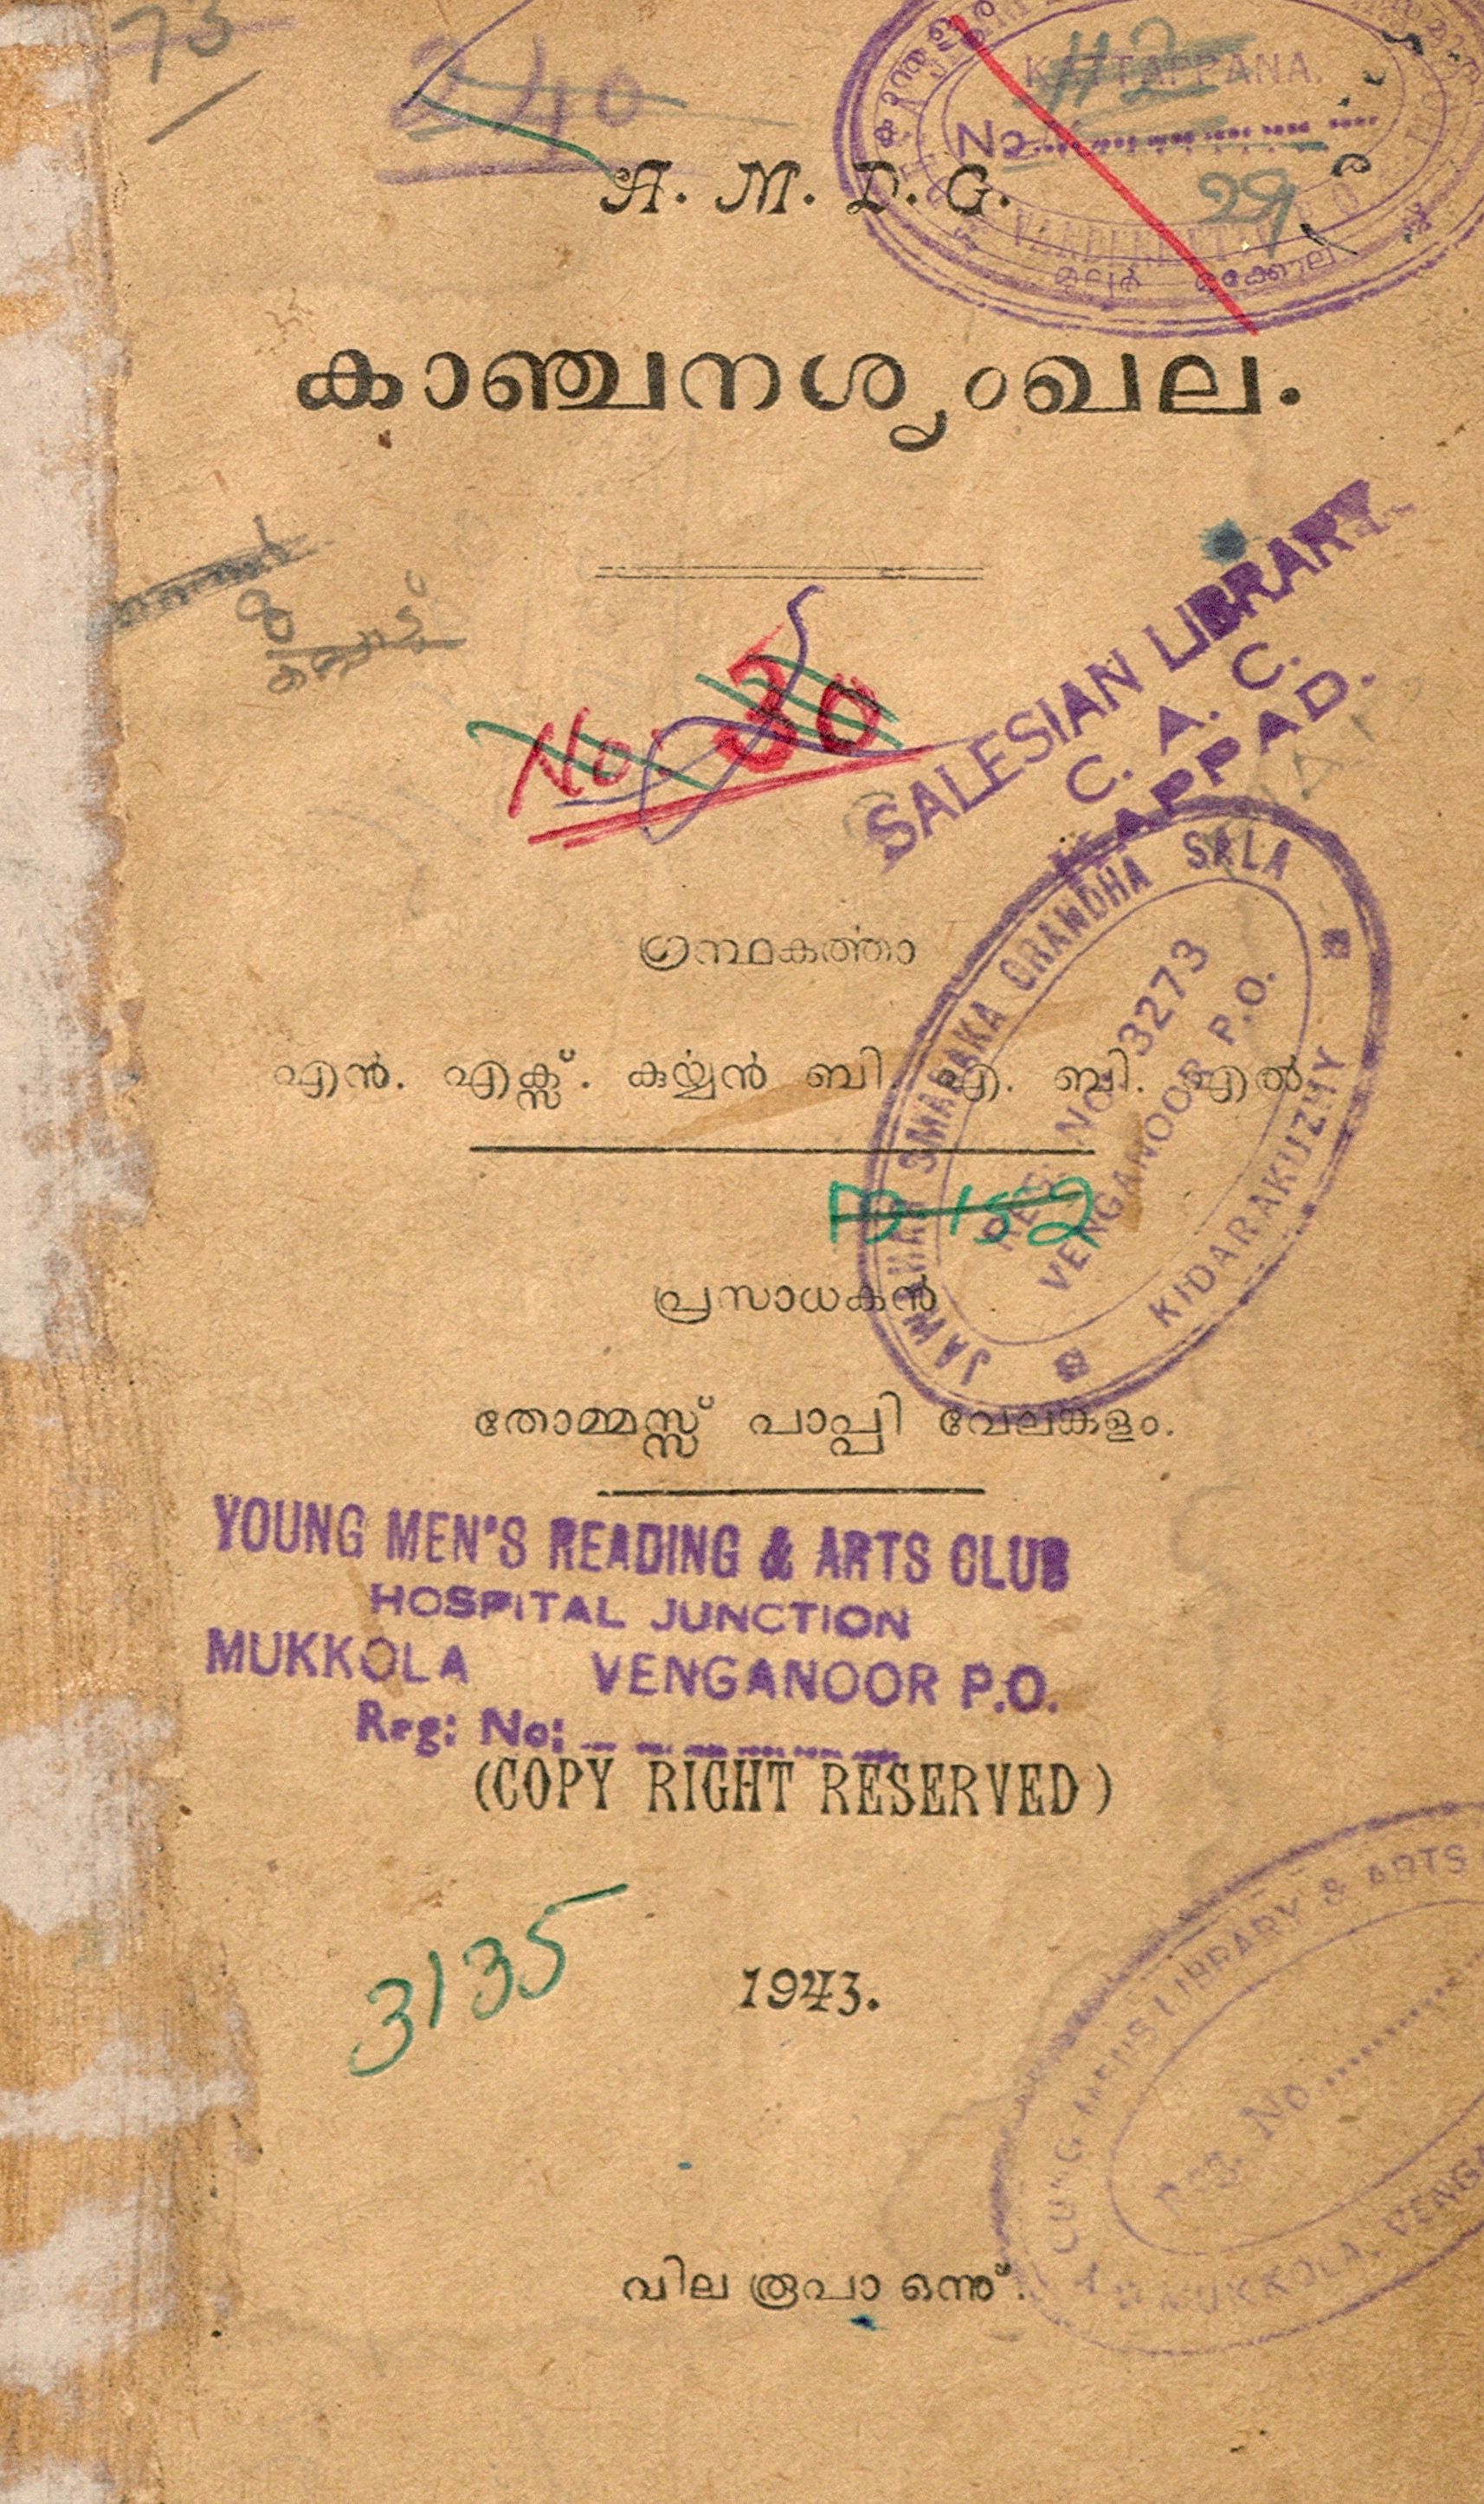 73
240
KATTAPPANA.
No
29
A. M. D. G.
കാഞ്ചനശൃംഖല.
No. 30
SALESIAN LIBRARY
C. A. C.
JAWAHAR SMARAKA GRANDHA SALA
REG. NO. 3273
VENGANOOR P.O.
KIDARAKUZHY
ഗ്രന്ഥകർത്താ
എൻ. എക്സ്. കുര്യൻ ബി. എ. ബി. എൽ
D 152
പ്രസാധകൻ
തോമ്മസ്സ് പാപ്പി വേലങ്കളം.
YOUNG MEN'S READING & ARTS CLUB
HOSPITAL JUNCTION
MUKKOLA VENGANOOR P.O.
Reg: No:
(COPY RIGHT RESERVED)
3135
1943.
LIBRARY & ARTS
Reg. No
MUKKOLA, VENGA
വില രൂപാ ഒന്ന്.